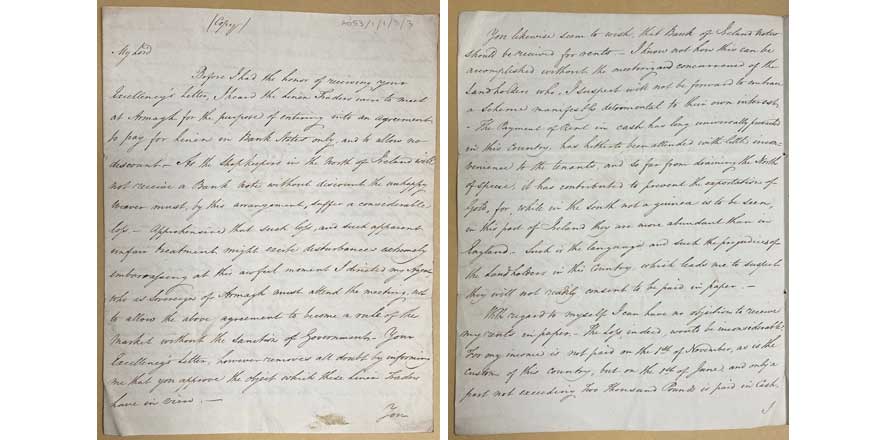 (Copy)
4053/1/1/3/3
My Lord
Before I had the honor of receiving your
Excellency's Letter, I heard the Linen Traders were to meet
at Armagh for the purpose of entering into an agreement
to pay for linens in Bank Notes only, and to allow no
discount — As the Shopkeepers in the North of Ireland will
not receive a Bank Note without discount the unhappy
weaver must, by this arrangement, suffer a considerable
loss — Apprehensive that such loss, and such apparent
unfair treatment might excite disturbance extremely
embarrassing at this awful moment I directed my Agent
who is Sovereign of Armagh must attend the meeting, not
to allow the above agreement to become a rule of the
Market without the Sanction of Government — Your
Excellency's Letter, however removes all doubt by informing
me that you approve the object which these Linen Traders
have in view. —
You
You likewise seem to wish, that Bank of Ireland Notes
should be received for rents — I know not how this can be
accomplished without the meeting and concurrence of the
Landholders who, I suspect will not be forward to embrace
a Scheme manifestly detrimental to their own interests
— The Payment of Rent in cash has long universally prevailed
in this Country, has hitherto been attended with little incon-
venience to the tenants, and so far from draining the North
of specie, it has contributed to prevent the exportation of
Gold, for while in the South not a guinea is to be seen,
in this part of Ireland they are more abundant than in
England — Such is the language and such the prejudices of
the Landholders in this Country, which leads me to suspect
they will not readily consent to be paid in paper. —
With regard to myself I can have no objection to receive
my rents in paper — The loss, indeed, would be inconsiderable
For my income is not paid on the 1st of November, as is the
custom of this country, but on the 1st of June, and only a
part not exceeding Two Thousand Pounds is paid in Cash.